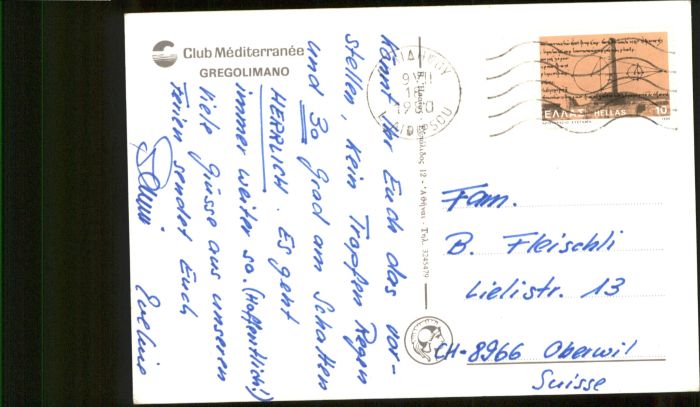 Club Méditerranée
GREGOLIMANO
Könnt Ihr Euch das vor-
stellen, kein Tropfen Regen
und 30 Grad am Schatten
HERRLICH. Es geht
immer weiter so. (Hoffentlich!)
Viele Grüsse aus unseren
Ferien sendet Euch
Eveline
12 - Ἀθῆναι - Τηλ. 3245479
ΕΛΛΑΣ HELLAS 10
Fam.
B. Fleischli
Lielistr. 13
CH-8966 Oberwil
Suisse